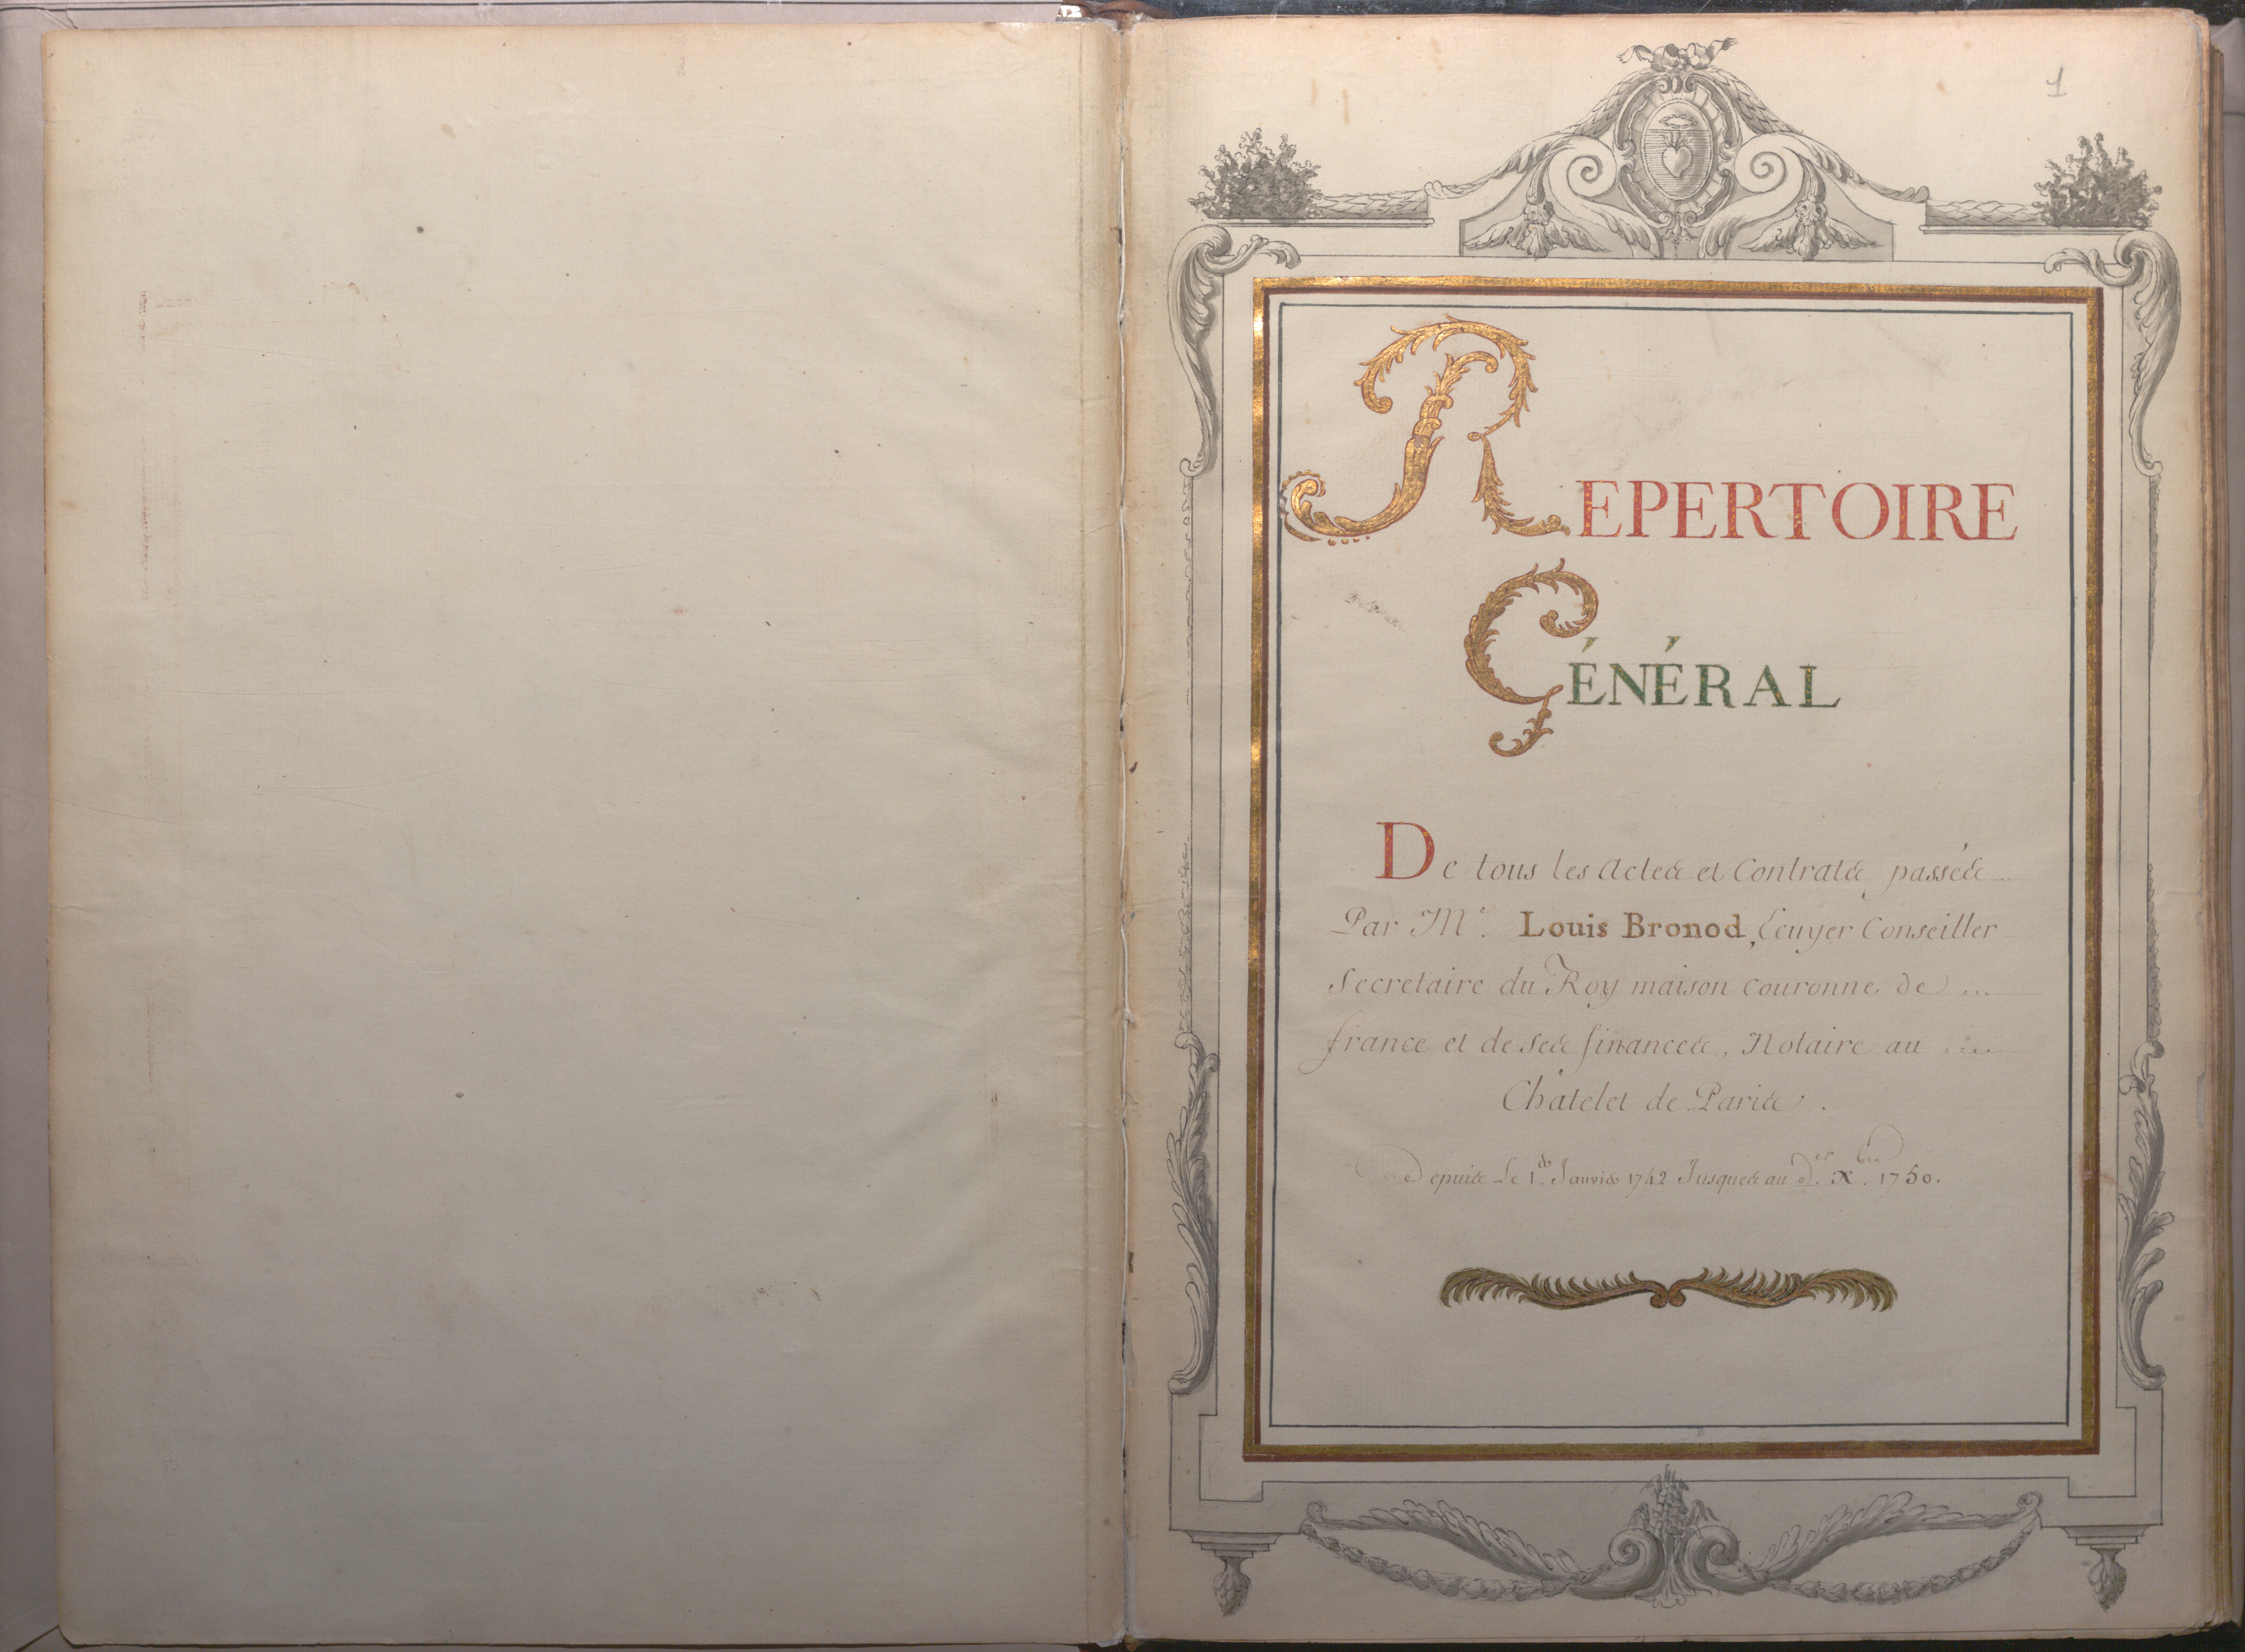 1
REPERTOIRE
GÉNÉRAL
De tous les Actes et Contrats passés
Par Me. Louis Bronod, Ecuyer Conseiller
Secretaire du Roy maison couronne de
france et de ses finances, Notaire au
Châtelet de Paris.
Depuis Le 1er. Janvier 1742 Jusques au der. Xbre. 1750.